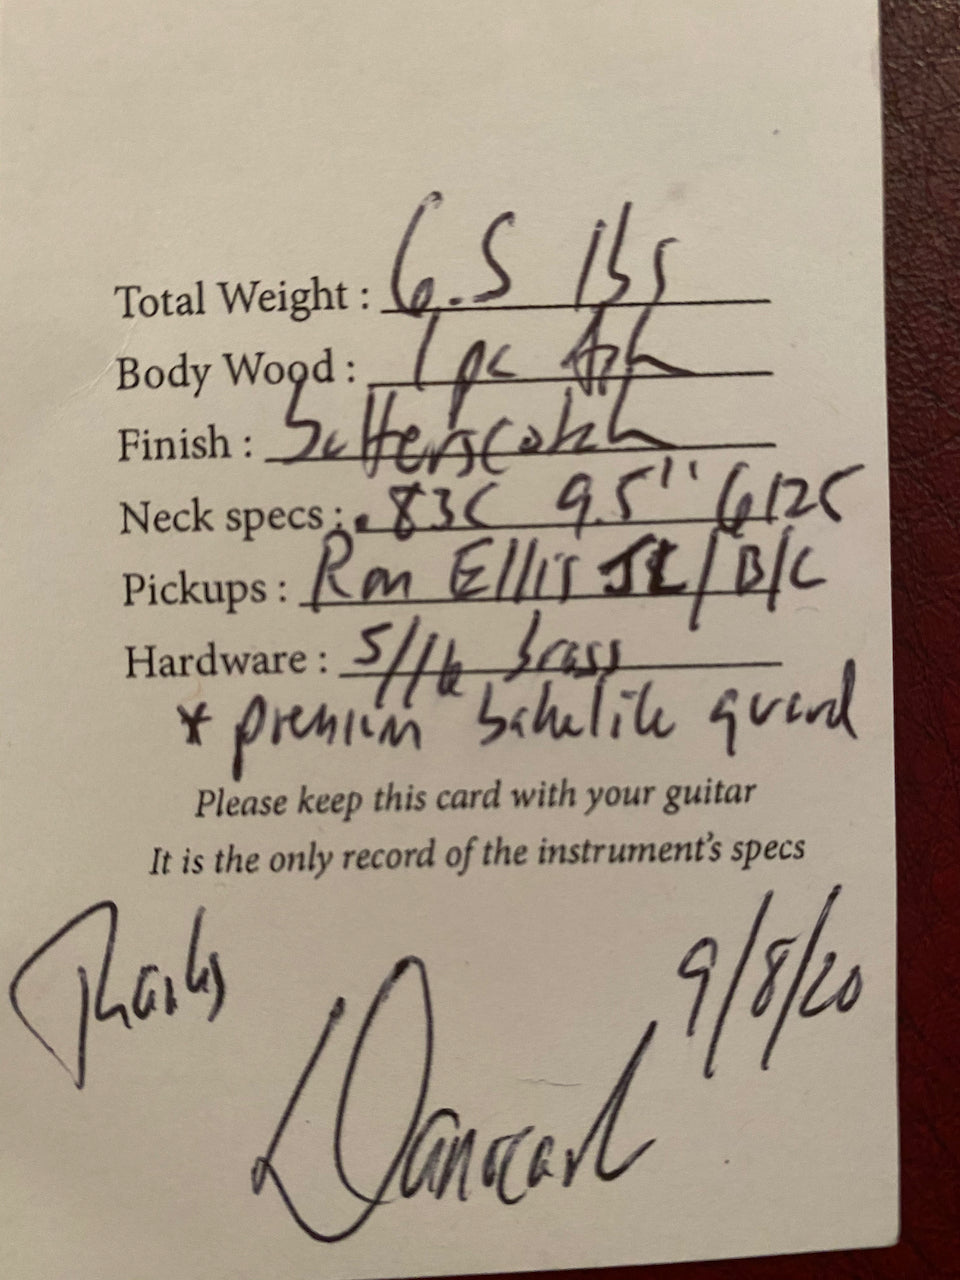 Total Weight : 6.5 lbs
Body Wood : 1 pc Ash
Finish : Butterscotch
Neck specs : .83C 9.5" 6125
Pickups : Ron Ellis JL/B/C
Hardware : 5/16 brass
* premium bakelite guard
Please keep this card with your guitar
It is the only record of the instrument's specs
Thanks
9/8/20
Danocaster